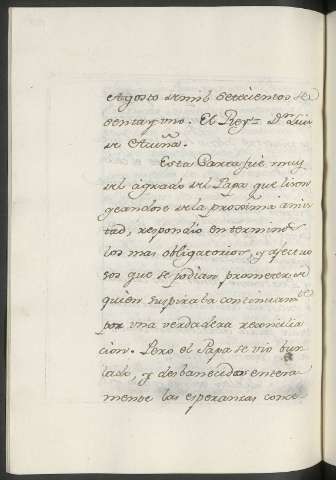 Agosto de mil setecientos se-
senta y uno. El Rey = Dn. Luis
de Acuña.
Esta Carta fue muy
del agrado del Papa que lison
geandose de la proxima amis
tad, respondio en terminos
los mas obligatorios, y afectuo
sos que se podian prometer de
quien suspiraba continuamte.
por una verdadera reconcilia
cion. Pero el Papa se vio bur
lado, y desbanecidas entera
mente las esperanzas conce-